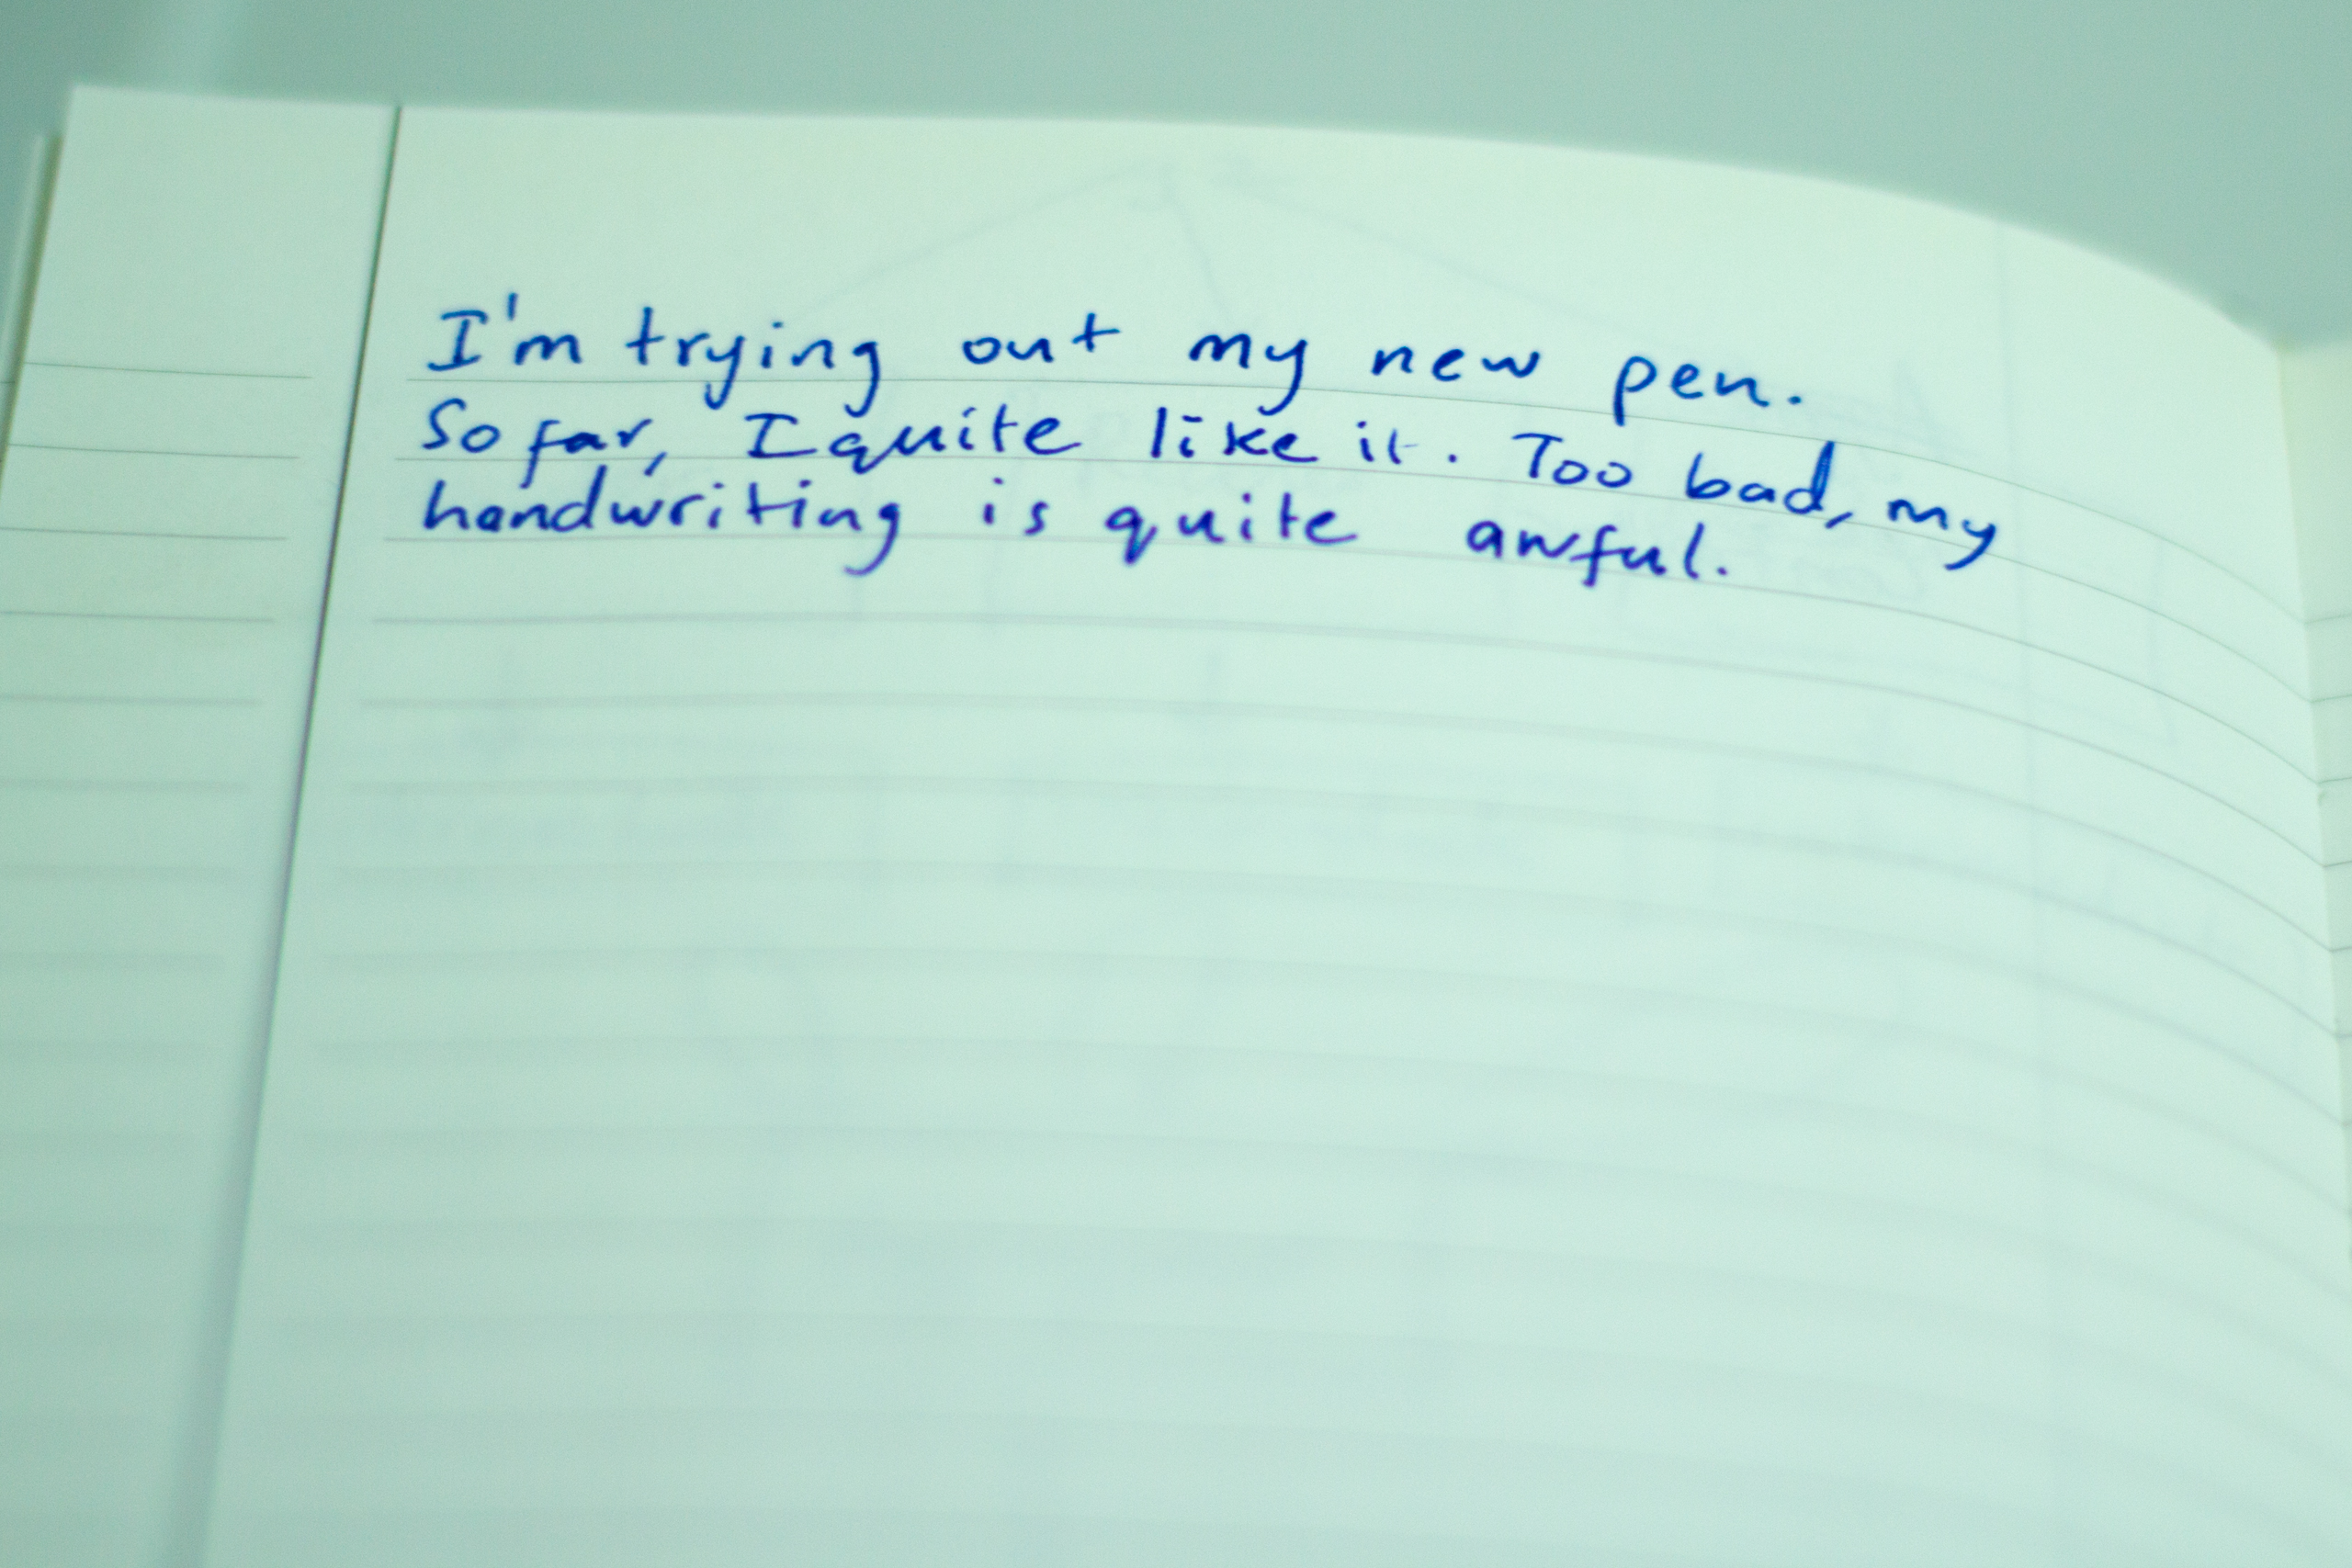 I'm trying out my new pen.
So far, I quite like it. Too bad, my
handwriting is quite awful.